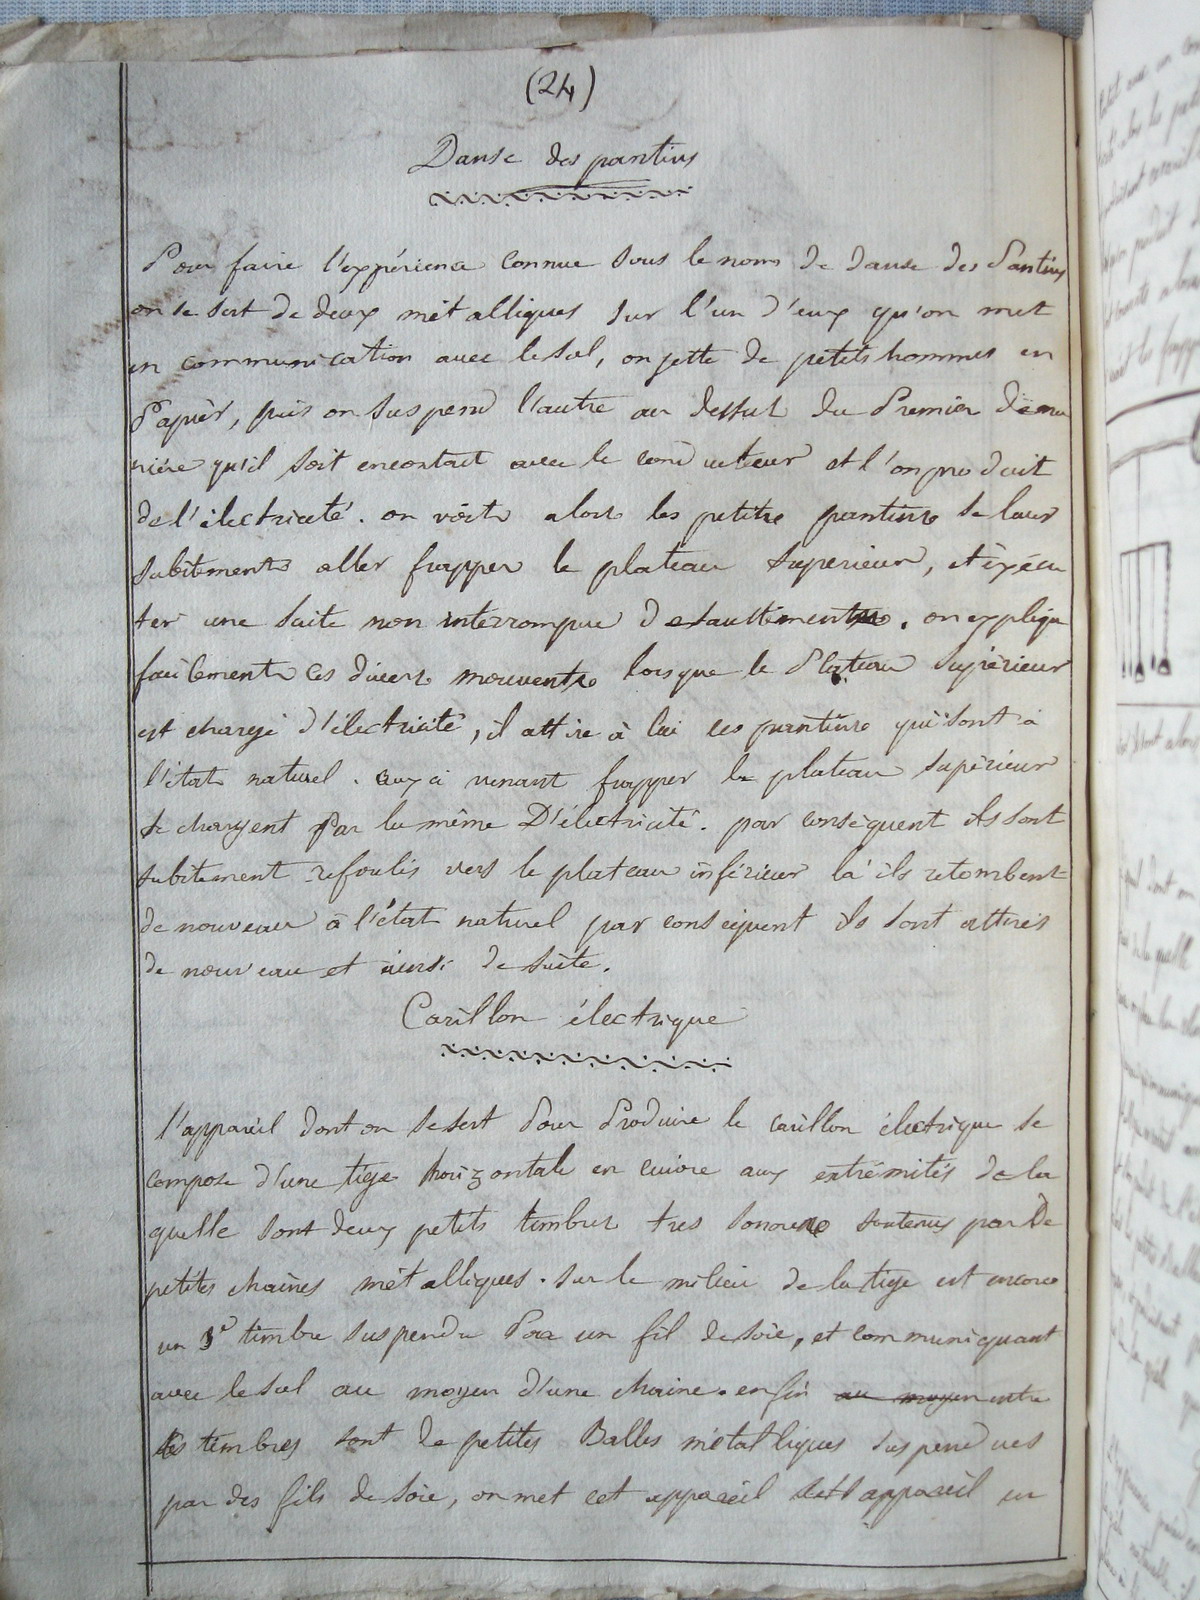 (24)
Danse des pantins
Pour faire l'expérience connue sous le nom de danse des Pantins
on se sert de deux métalliques sur l'un d'eux qu'on met
en communication avec le sol, on jette de petits hommes en
Papier, puis on suspend l'autre au dessus du Premier de ma
nière qu'il soit en contact avec le conducteur et l'on produit
de l'électricité. on voit alors les petits pantins se lever
subitement aller frapper le plateau supérieur, et exécu
ter une suite non interrompue de sautements. on explique
facilement ces divers mouvents lorsque le Plateau supérieur
est chargé d'électricité, il attire à lui les pantins qui sont à
l'état naturel. ceux ci venant frapper le plateau supérieur
se chargent par la même D'électricité. par conséquent ils sont
subitement refoulés vers le plateau inférieur là ils retombent
de nouveau à l'état naturel par conséquent ils sont attirés
de nouveau et ainsi de suite.
Carillon électrique
l'appareil dont on se sert Pour Produire le carillon électrique se
compose d'une tige horizontale en cuivre aux extrémités de la
quelle sont deux petits timbres tres sonores soutenus par De
petites chaines métalliques. sur le milieu de la tige est encore
un 3e timbre suspendu Par un fil de soie, et communiquant
avec le sol au moyen d'une chaine. enfin au moyen entre
les timbres sont de petites Balles métalliques suspendues
par des fils de soie, on met cet appareil appareil en